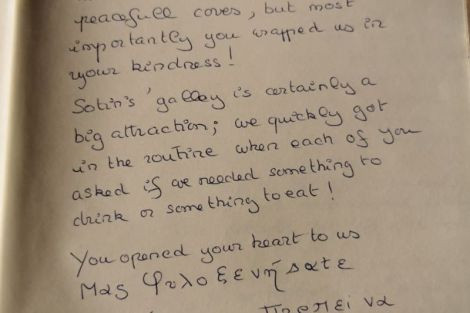 peacefull coves, but most
importantly you wrapped us in
your kindness!
Sotiris' galley is certainly a
big attraction; we quickly got
in the routine when each of you
asked if we needed something to
drink or something to eat!
You opened your heart to us
Μας φυλοξενήσατε
Πρεπει να